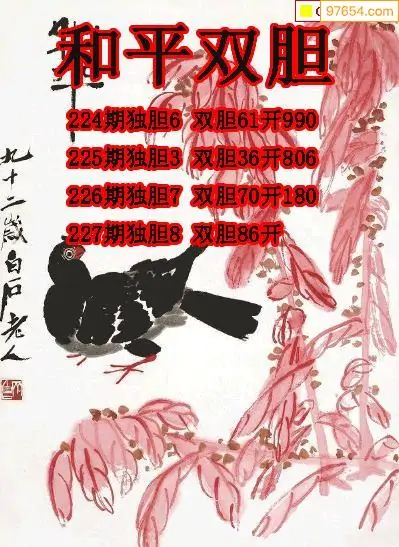 97654.com
和平双胆
224期独胆6 双胆61开990
225期独胆3 双胆36开806
226期独胆7 双胆70开180
227期独胆8 双胆86开
九十二岁白石老人